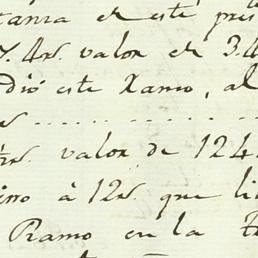 tanza en este pres
7. 4rs. valor en 3.4
dió este Ramo, al
rs. valor de 124.
à 12rs. que li
Ramo en la